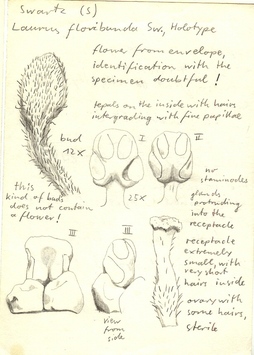 Swartz (S)
Laurus floribunda Sw, Holotype
flower from envelope,
identification with the
specimen doubtful!
tepals on the inside with hairs
intergrading with fine papillae
bud
12x
I
II
this
kind of buds
does not contain
a flower!
25x
no
staminodes
glands
protruding
into the
receptacle
III
III
view
from
side
receptacle
extremely
small, with
very short
hairs inside
ovary with
some hairs,
sterile